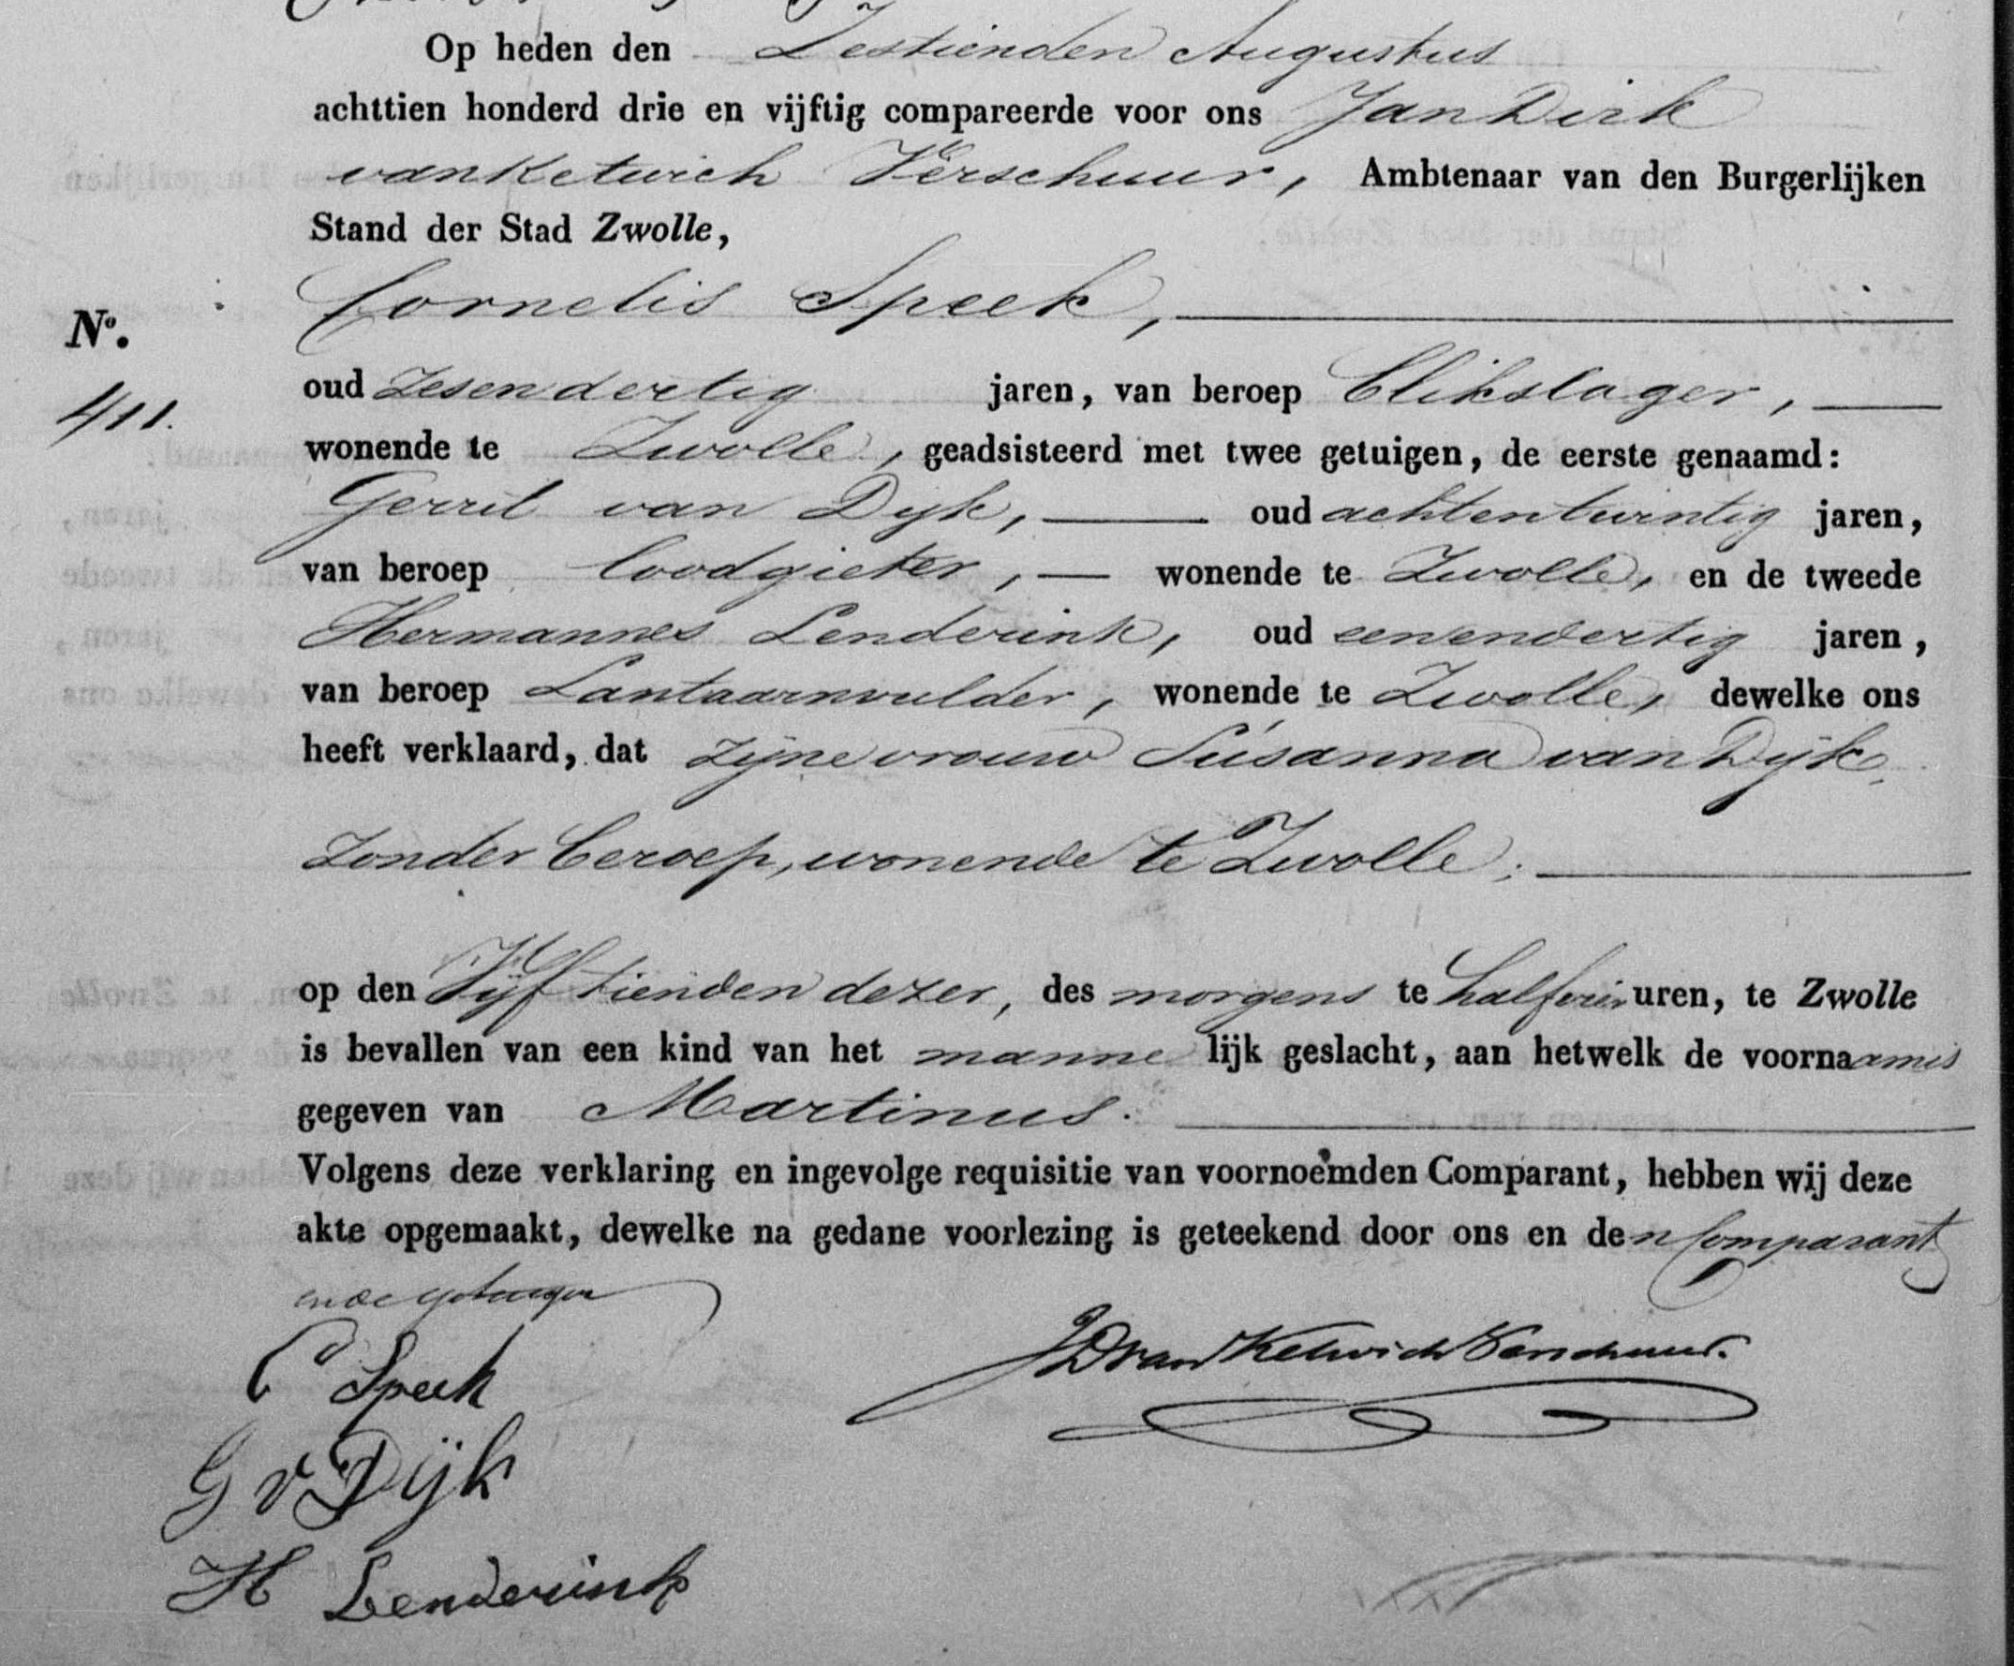 Op heden den Zestienden Augustus
achttien honderd drie en vijftig compareerde voor ons Jan Dirk
van Ketwich Verschuur, Ambtenaar van den Burgerlijken
Stand der Stad Zwolle,
Cornelis Speek,
No.
411.
oud Zesendertig jaren, van beroep blikslager,
wonende te Zwolle, geadsisteerd met twee getuigen, de eerste genaamd:
Gerrit van Dijk, oud achtentwintig jaren,
van beroep loodgieter, wonende te Zwolle, en de tweede
Hermannes Lenderink, oud eenendertig jaren,
van beroep Lantaarnvulder, wonende te Zwolle, dewelke ons
heeft verklaard, dat zijne vrouw Susanna van Dijk,
Zonder beroep, wonende te Zwolle;
op den Vijftienden dezer, des morgens te half uren, te Zwolle
is bevallen van een kind van het mannelijk geslacht, aan hetwelk de voornaam is
gegeven van Martinus.
Volgens deze verklaring en ingevolge requisitie van voornoemden Comparant, hebben wij deze
akte opgemaakt, dewelke na gedane voorlezing is geteekend door ons en den Comparant
en de getuigen
C Speek
JD van Ketwich Verschuur.
G v Dijk
H Lenderink